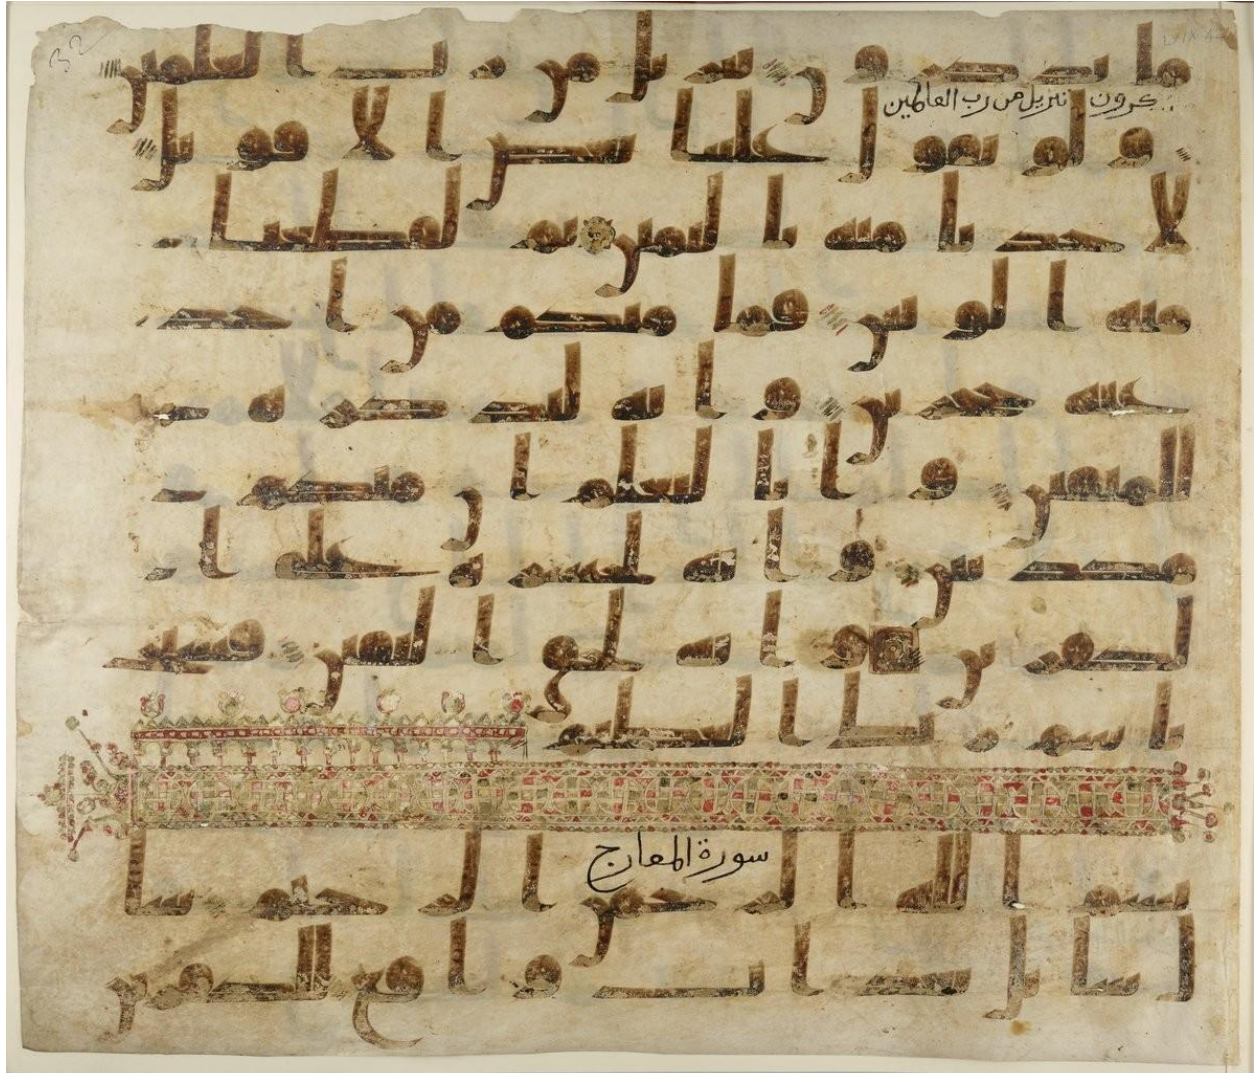 32
ما تذكرون تنزيل من رب العلمين
كرون تنزيل من رب العالمين
ولو تقول علينا بعض الاقويل
لاخذنا منه باليمين ثم لقطعنا
منه الوتين فما منكم من احد
عنه حجزين وانه لتذكرة
للمتقين وانا لنعلم ان منكم
مكذبين وانه لحسرة على ا
لكفرين وانه لحق اليقين فسبح
باسم ربك العظيم
سورة المعارج
بسم الله الرحمن الرحيم سا
ل سائل بعذاب واقع للكفرين